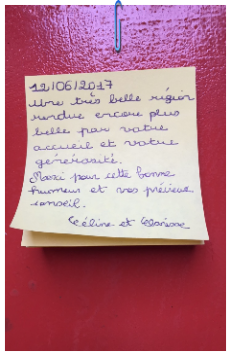 12/06/2017
Une très belle région
rendue encore plus
belle par votre
accueil et votre
générosité.
Merci pour cette bonne
humeur et vos précieux
conseil.
Céline et Clarisse